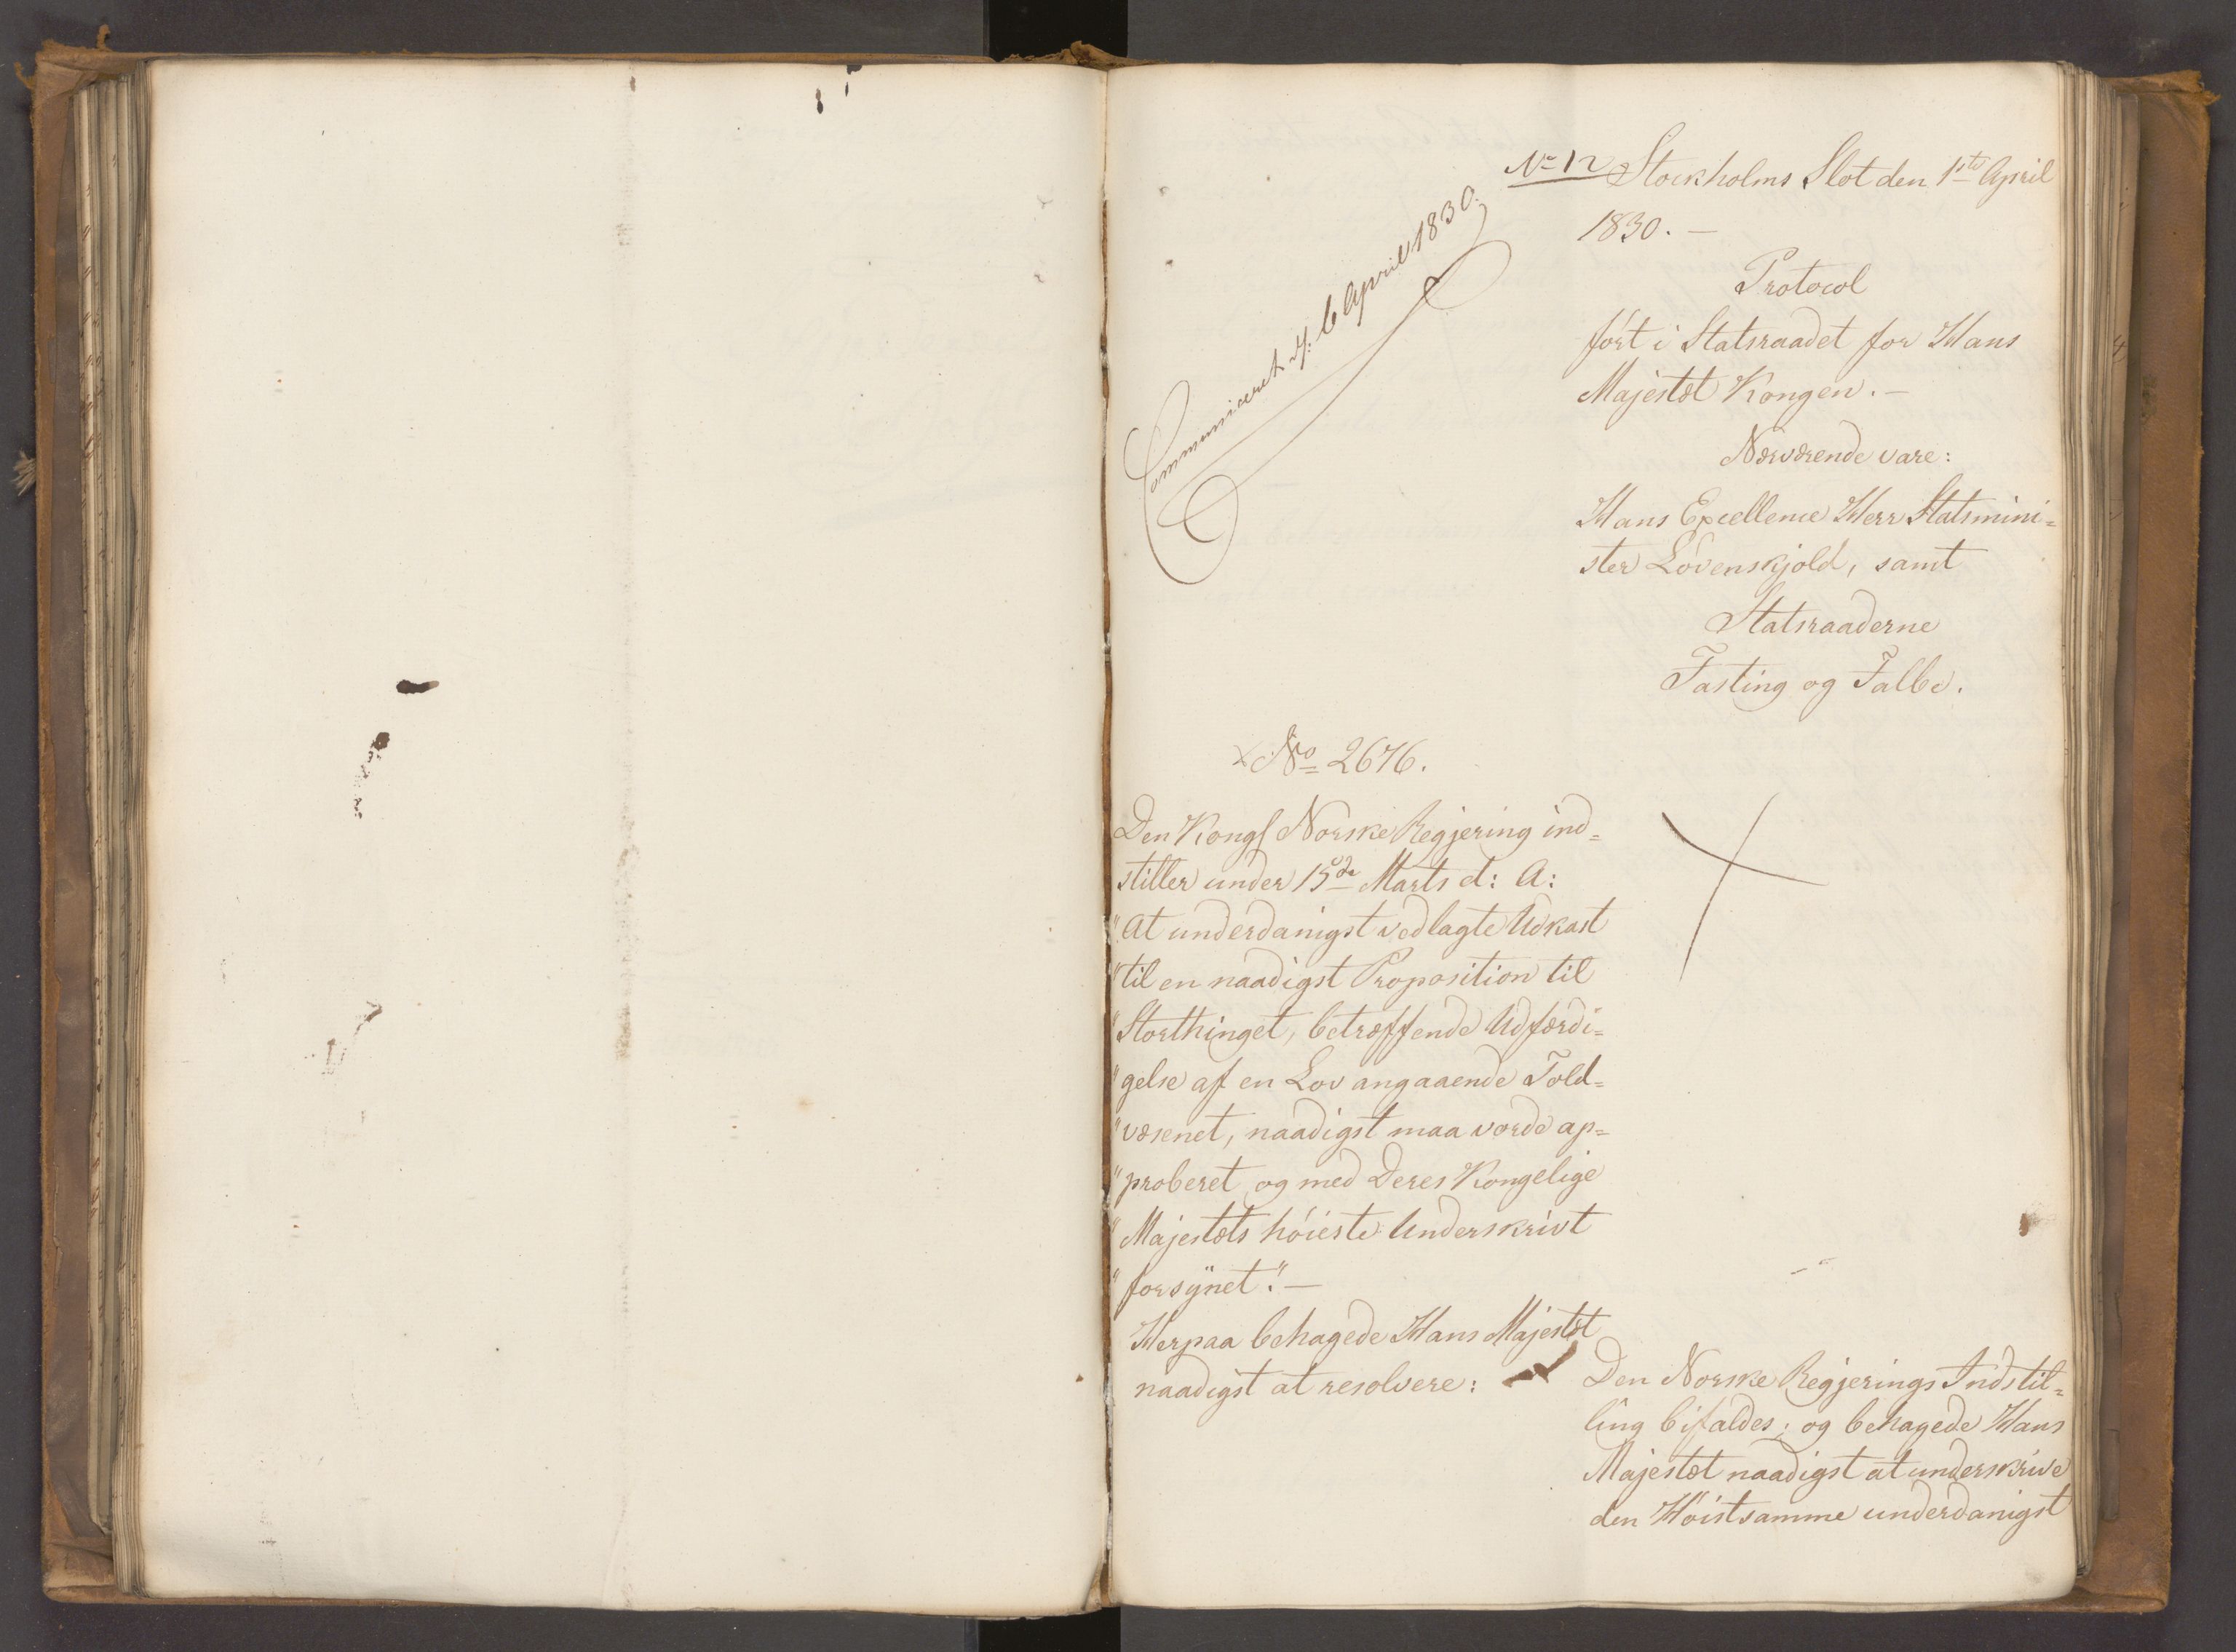 No 12 Stockholms Slot den 1ste April
1830. —
Communiceret d: 6 April 1830.
Protocol
fört i Statsraadet for Hans
Majestæt Kongen. —
Nærværende vare:
Hans Excellence Herr Statsmini=
ster Lövenskjold, samt
Statsraaderne
Fasting og Falbe.
No 2676.
Den Kongl Norske Regjering ind=
stiller under 15de Marts d: A:
"At underdanigst vedlagte Udkast
"til en naadigst Proposition til
"Storthinget, betræffende Udfærdi=
"gelse af en Lov angaaende Told=
"væsenet, naadigst maa vorde ap=
"proberet og med Deres Kongelige
"Majestæts höieste Underskrivt
"forsynet." —
Herpaa behagede Hans Majestæt
naadigst at resolvere:
Den Norske Regjerings Indstil=
ling bifaldes; og behagede Hans
Majestæt naadigst at underskrive
den Höistsamme underdanigst